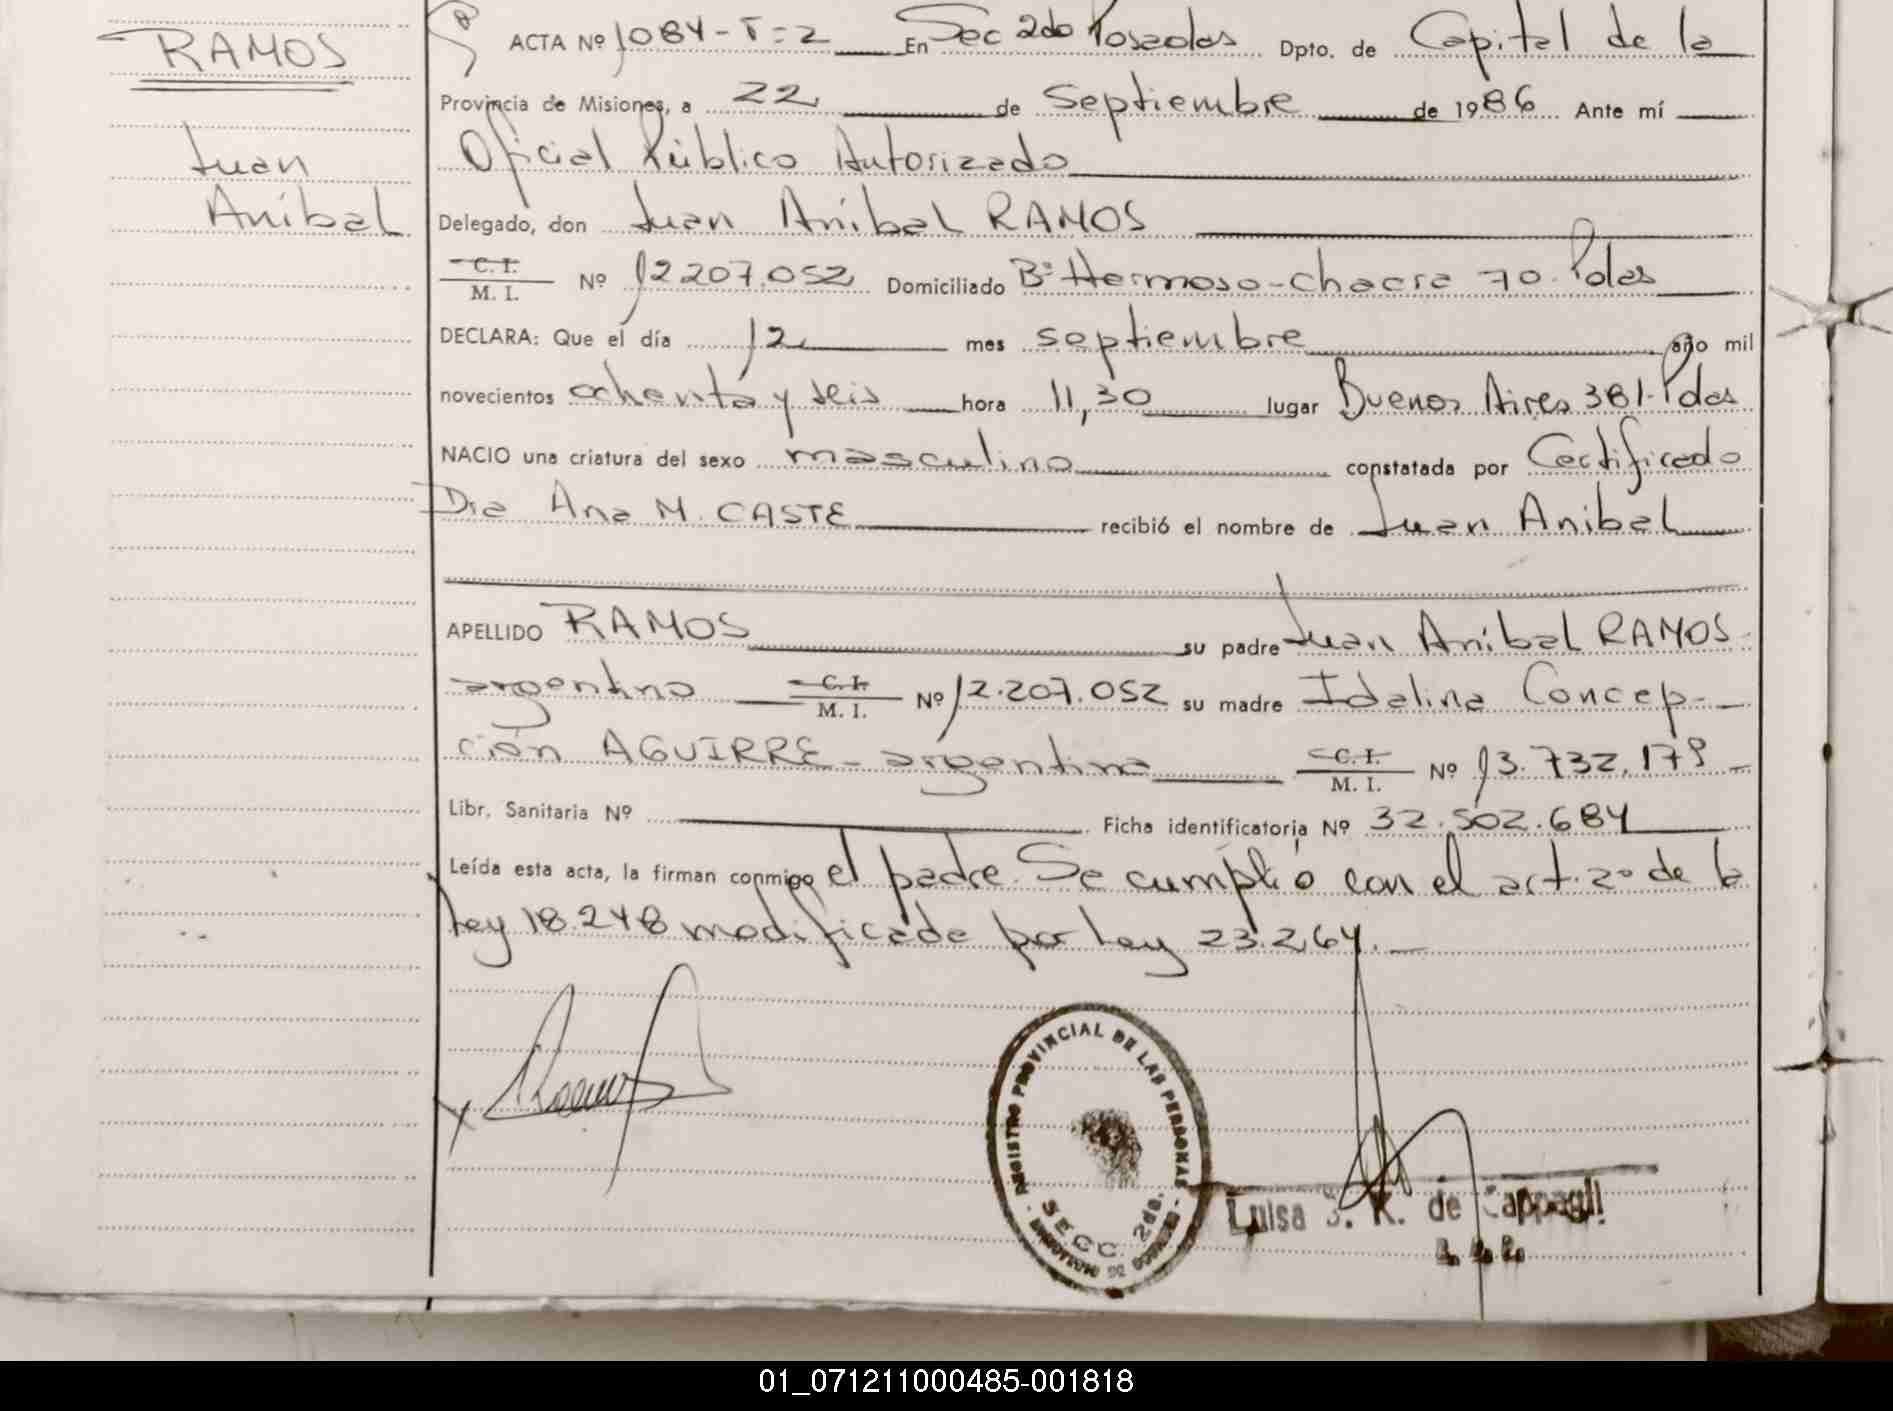 RAMOS
Juan
Anibal
ACTA Nº 1084-T=2 En Sec 2do Posadas Dpto. de Capital de la
Provincia de Misiones, a 22 de Septiembre de 1986 Ante mí
Oficial Público Autorizado
Delegado, don Juan Anibal RAMOS
C. I.
M. I. Nº 12.207.052 Domiciliado Bº Hermoso-Chacra 70. Pdas
DECLARA: Que el día 12 mes septiembre año mil
novecientos ochenta y seis hora 11,30 lugar Buenos Aires 381-Pdas
NACIO una criatura del sexo masculino constatada por Certificado
Dra Ana M. CASTE recibió el nombre de Juan Anibal
APELLIDO RAMOS su padre Juan Anibal RAMOS
argentino C. I.
M. I. Nº 12.207.052 su madre Idalina Concep-
ción AGUIRRE - argentina C. I.
M. I. Nº 13.732.179
Libr. Sanitaria Nº Ficha identificatoria Nº 32.502.684
Leída esta acta, la firman conmigo el padre. Se cumplió con el art. 2º de la
Ley 18.248 modificada por Ley 23.264.
REGISTRO PROVINCIAL DE LAS PERSONAS
SECC. 2da.
Luisa S. K. de
01_071211000485-001818